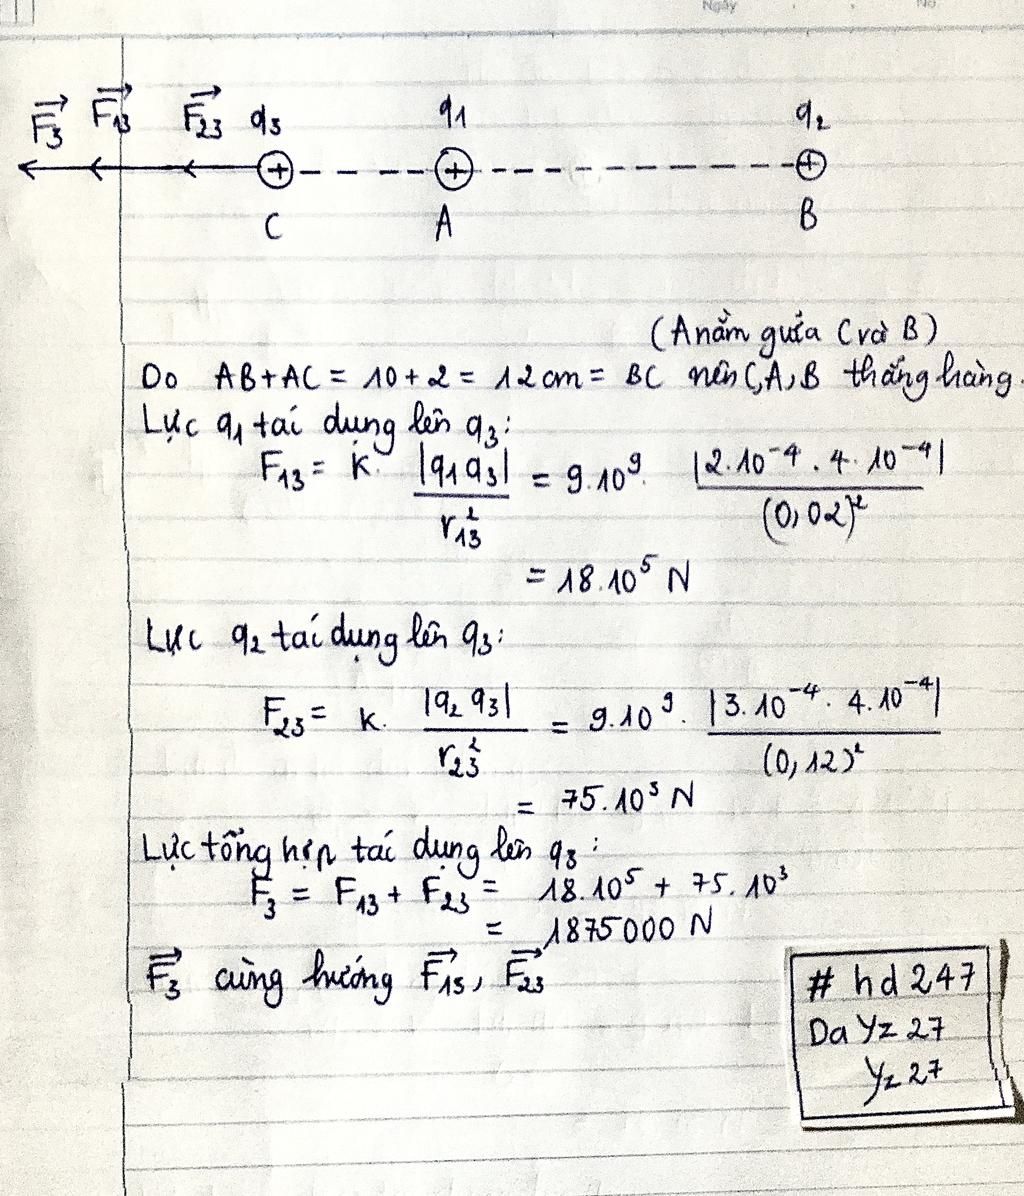 Ngày No.
F₃⃗ F₁₃⃗ F₂₃⃗ q₃ q₁ q₂
+ + +
C A B
(A nằm giữa C và B)
Do AB + AC = 10 + 2 = 12 cm = BC nên C, A, B thẳng hàng.
Lực q₁ tác dụng lên q₃:
F₁₃ = k. |q₁q₃| / r₁₃² = 9.10⁹. |2.10⁻⁴ . 4.10⁻⁴| / (0,02)²
= 18.10⁵ N
Lực q₂ tác dụng lên q₃:
F₂₃ = k. |q₂q₃| / r₂₃² = 9.10⁹. |3.10⁻⁴. 4.10⁻⁴| / (0,12)²
= 75.10³ N
Lực tổng hợp tác dụng lên q₃:
F₃ = F₁₃ + F₂₃ = 18.10⁵ + 75.10³
= 1875000 N
F₃⃗ cùng hướng F₁₃⃗, F₂₃⃗
# hd 247
Da Yz 27
Yz 27